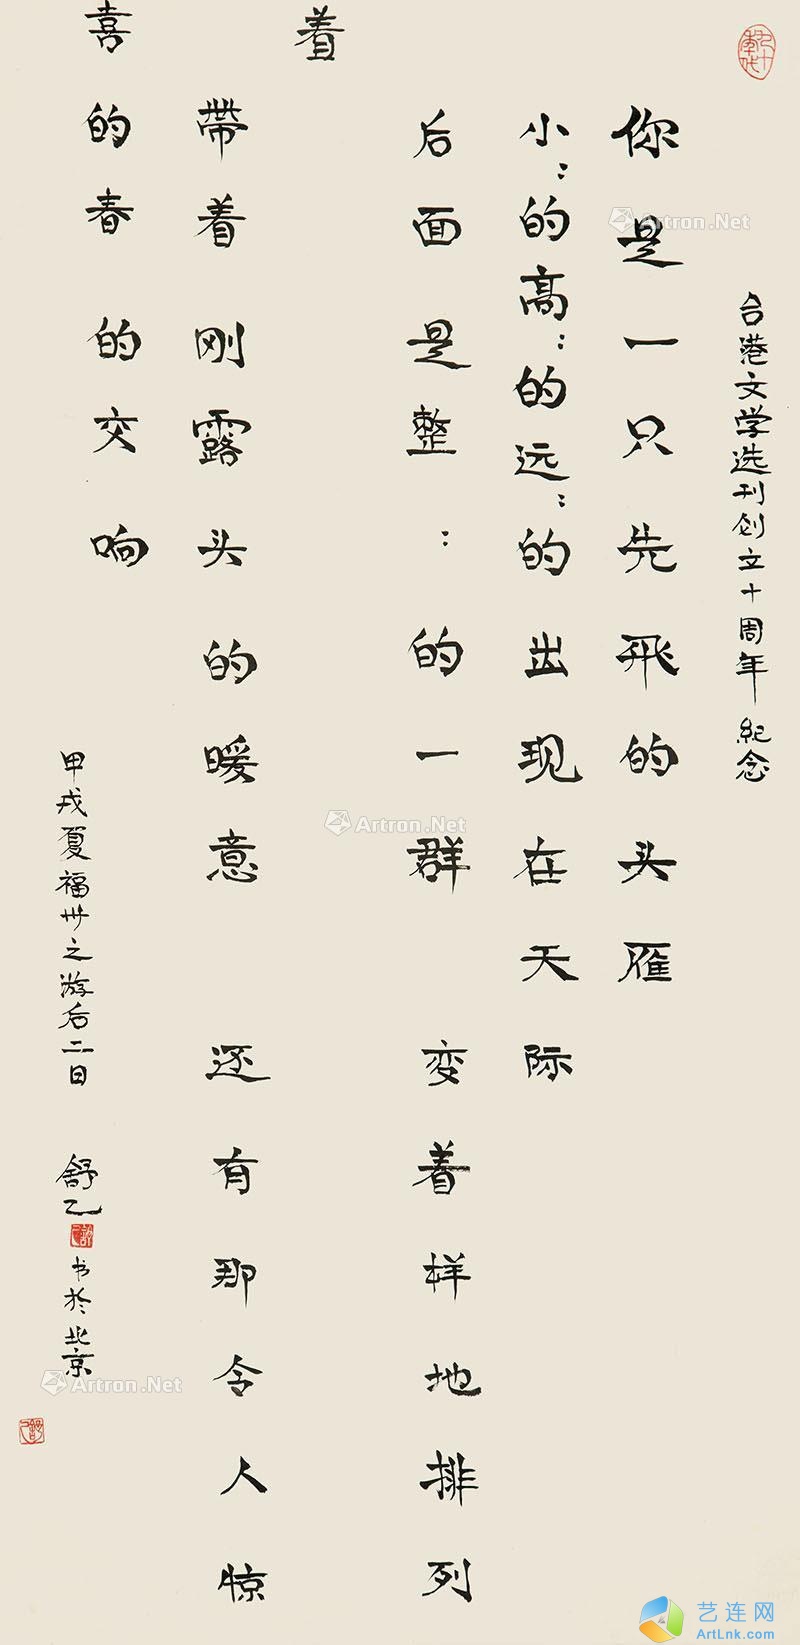 台港文学选刊创立十周年纪念
你是一只先飞的头雁
小：的高：的远：的出现在天际
后面是整：的一群 变着样地排列
着
带着刚露头的暖意 还有那令人惊
喜的春的交响
甲戌夏福州之游后二日 舒乙 书于北京
Artron.Net
Artron.Net
Artron.Net
艺连网
ArtLnk.com